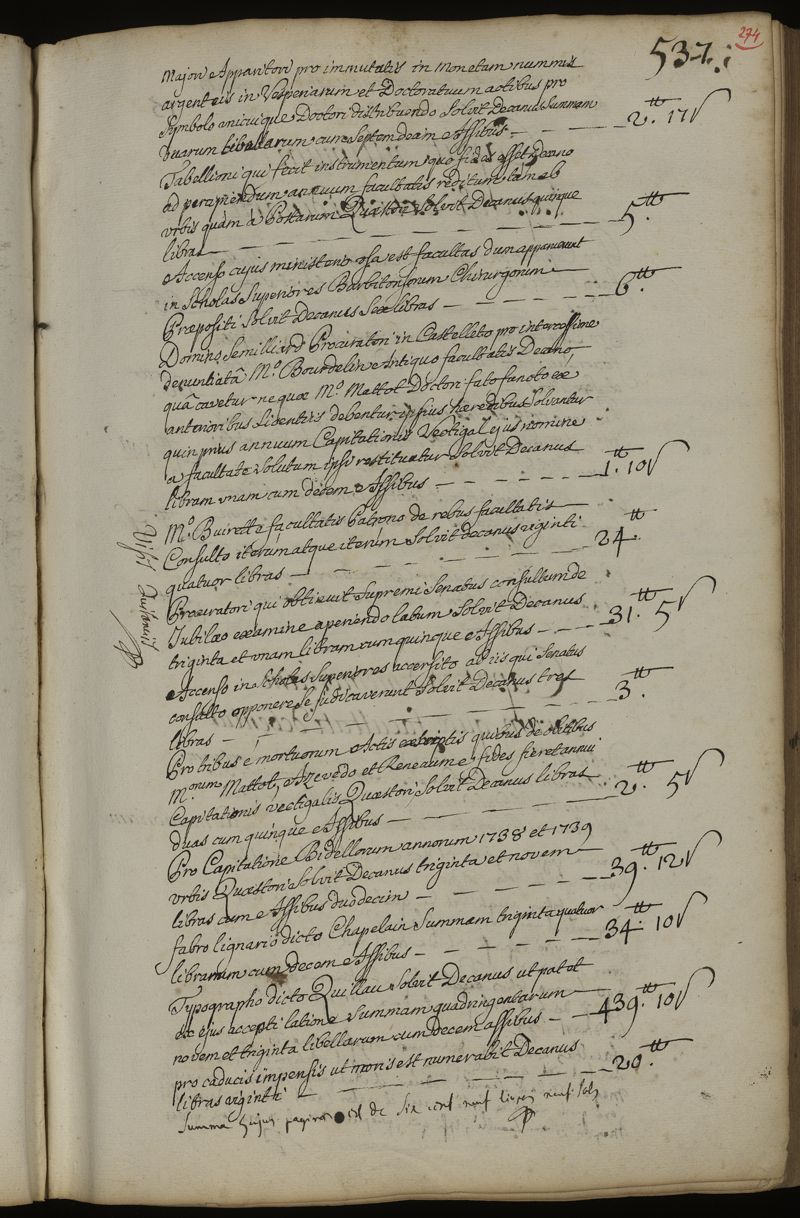 274
537.
Majori Apparitori pro immutatis in Monetam nummis
argenteis in Vesperiarum et Doctoratuum actibus pro
Symbolo unicuique Doctori distribuendo Solvit Decanus Summam
duarum libellarum cum Septemdecim Assibus — 2.tt 17s
Tabellioni qui fecit instrumentum quo fides esset Decano
ad percipiendum annuum facultatis reditum tam ab
urbis quàm a Postarum Quæstore Solvit Decanus quinque
libras — 5.tt
Accenso cujus ministerio usa est facultas dum apparuerunt
in Scholas Superiores Barbitonsorum Chirurgorum
Præpositi Solvit Decanus Sex libras — 6.tt
Domino Semilliard Procuratori in Castelleto pro intercessione
denuntiatâ Mo. Bourdelin Antiquo facultatis Decano,
quâ cavetur ne quæ Mo. Mattot Doctori fato functo ex
anterioribus Licentiis debentur, ipsius hæredibus Solvantur
quin prius annuum Capitationis Vectigal ejus nomine
a facultate Solutum ipsi restituatur Solvit Decanus
libram unam cum decem Assibus — 1.tt 10s
Mo. Buirette facultatis Patrono de rebus facultatis
Consulto iterùm atque iterùm Solvit decanus viginti
quatuor libras — 24.tt
Visit Quitavit
Procuratori qui obtinuit Supremi Senatus consultum de
Jubilæo examine aperiendo latum Solvit Decanus
triginta et unam libram cum quinque Assibus — 31.tt 5s
Accenso in Scholas Superiores accersito ab iis qui Senatus
consulto opponere Se judicaverunt Solvit Decanus tres
libras — 3.tt
Pro tribus è mortuorum Actis extractis quibus de obitibus
Morum Mattot, Azevedo et Reneaume fides fieret annui
Capitationis vectigalis Quæstori Solvit Decanus libras
duas cum quinque Assibus — 2.tt 5s
Pro Capitatione Bidellorum annorum 1738 et 1739
urbis Quæstori Solvit Decanus triginta et novem
libras cum Assibus duodecim — 39.tt 12s
fabro lignario dicto Chapelain Summam triginta quatuor
librarum cum decem Assibus — 34.tt 10s
Typographo dicto Quillau Solvit Decanus ut patet
ex ejus accepti latione Summam quadringentarum
novem et triginta libellarum cum decem assibus — 439.tt 10s
pro caducis impensis ut moris est numerabit Decanus
libras viginti — 20.tt
Summa hujus paginæ est de Six cent neuf livres neuf Sols